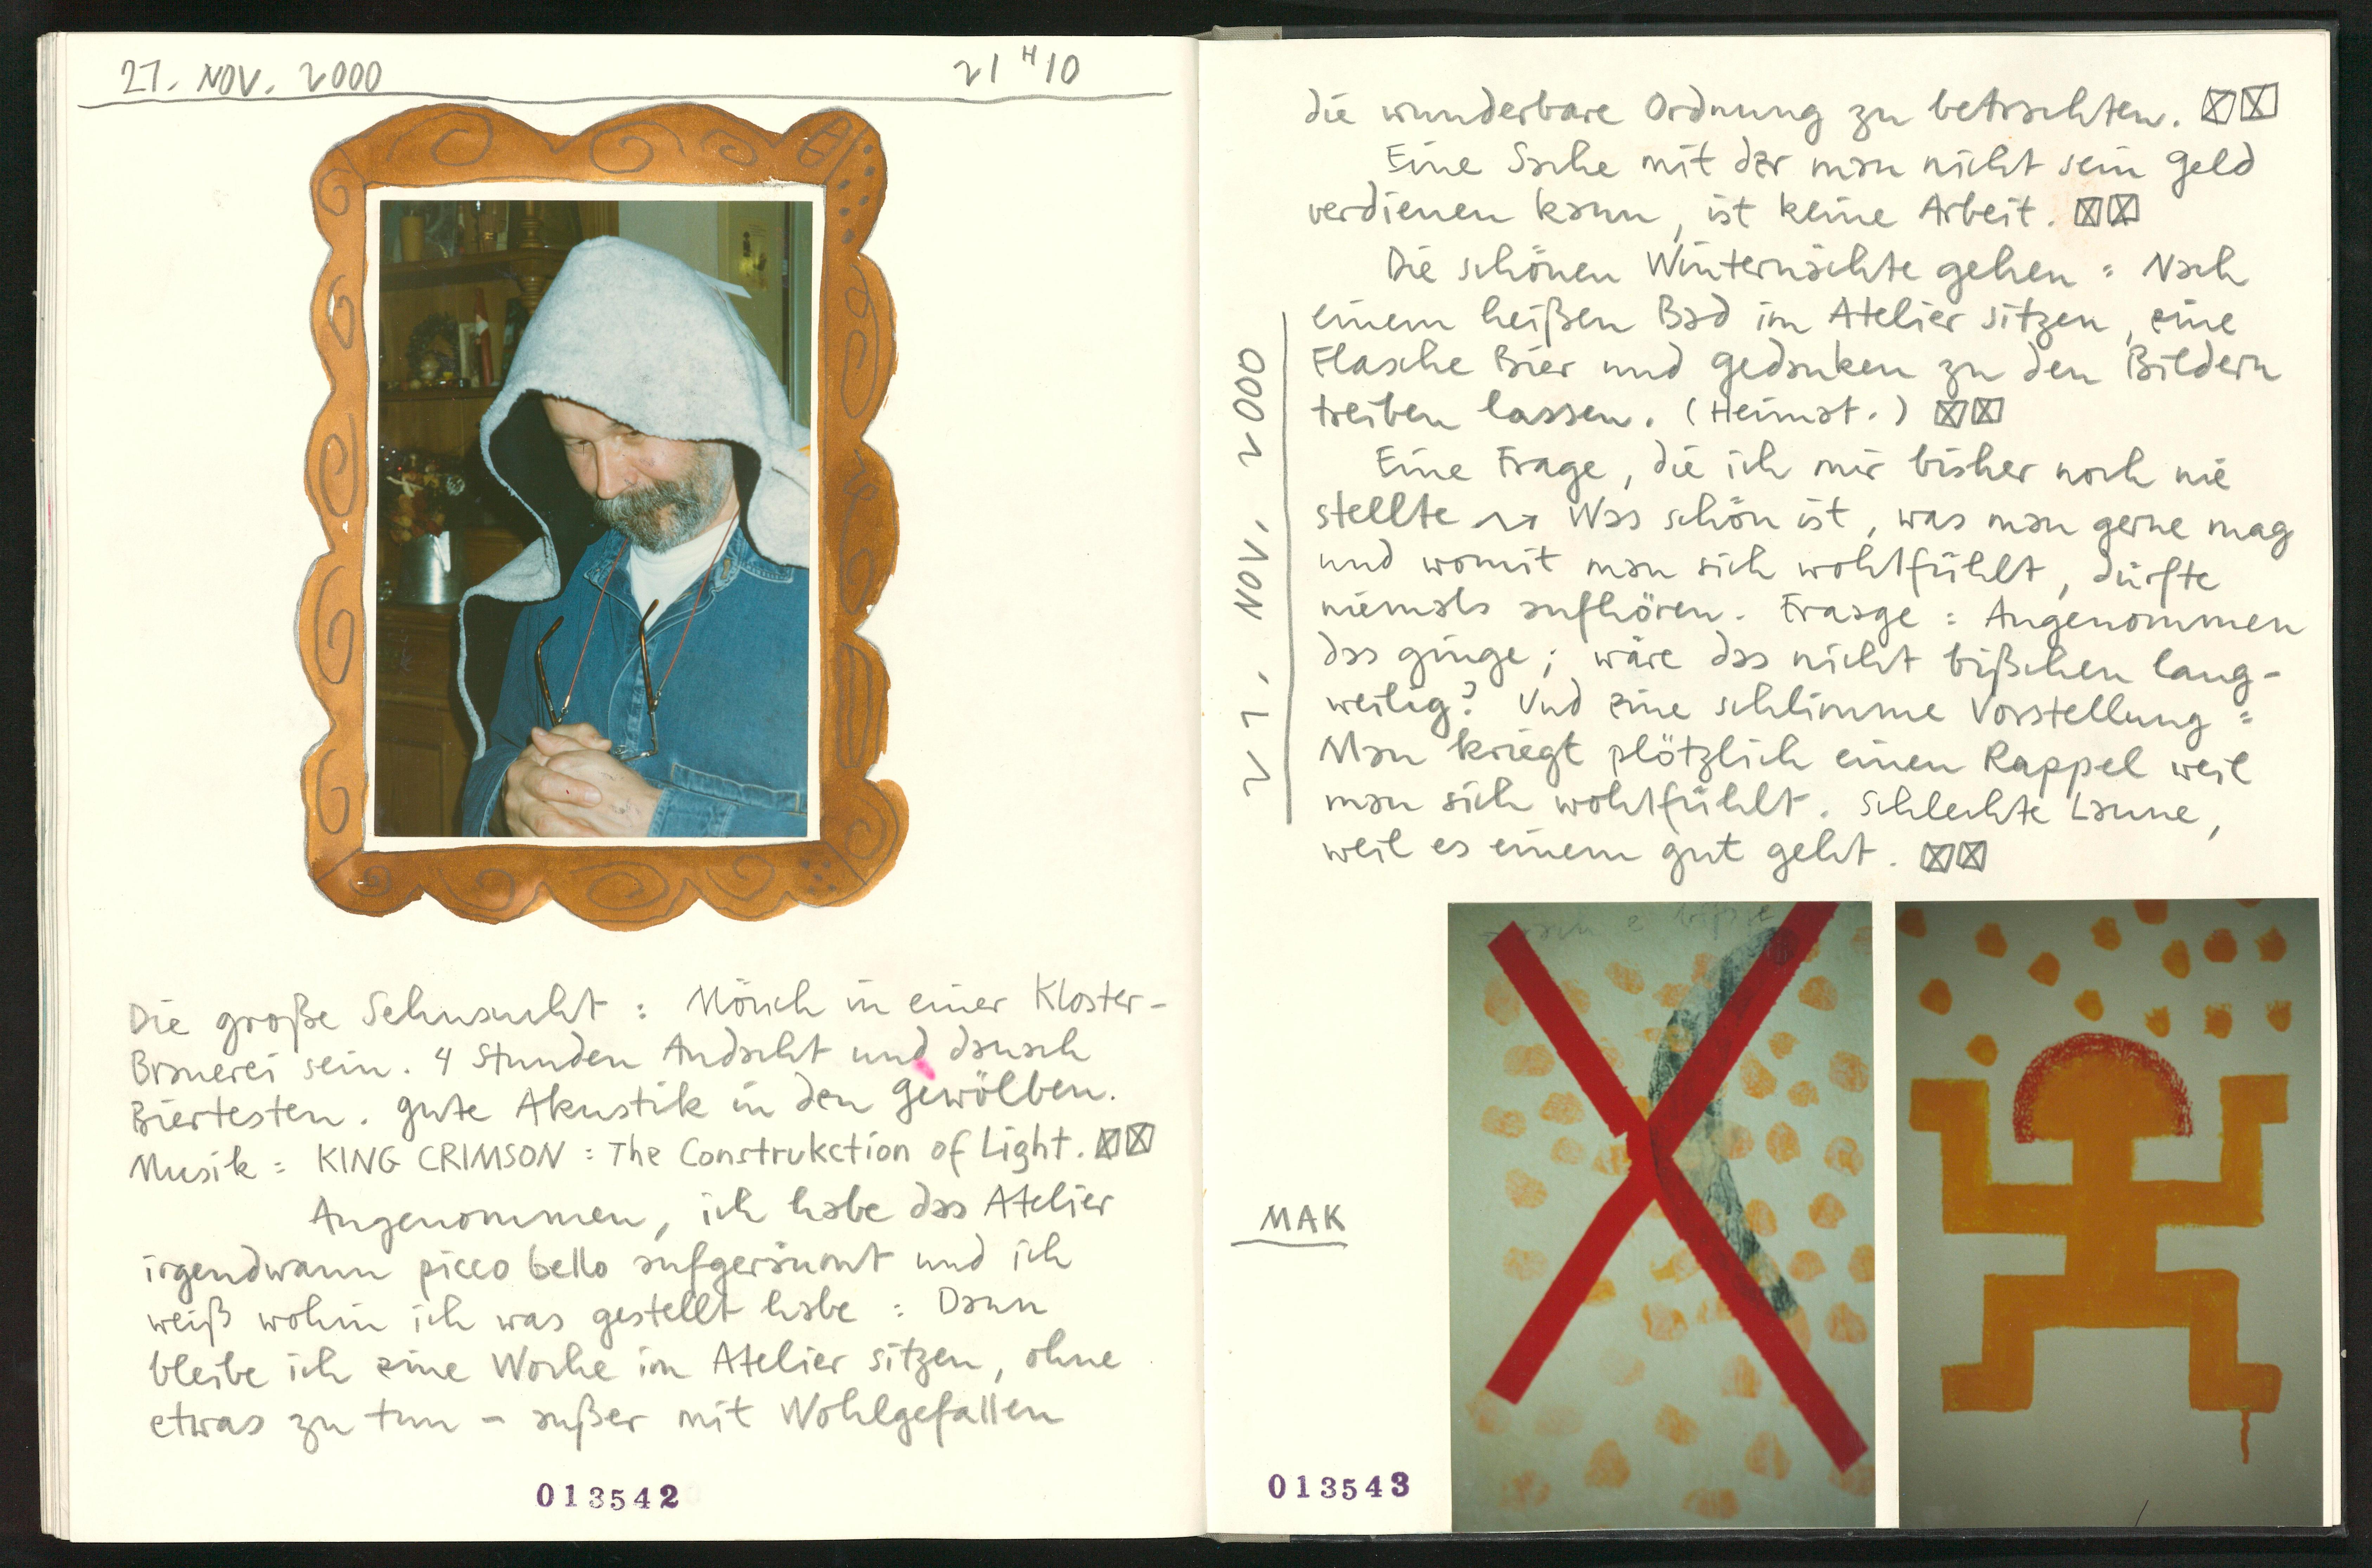 21. NOV. 2000
21 H 10
Die große Sehnsucht : Mönch in einer Kloster-
Brauerei sein. 4 Stunden Andacht und danach
Biertesten. Gute Akustik in den Gewölben.
Musik : KING CRIMSON : The Construkction of Light. ☒☒
Angenommen, ich habe das Atelier
irgendwann picco bello aufgeräumt und ich
weiß wohin ich was gestellt habe : Dann
bleibe ich eine Woche im Atelier sitzen, ohne
etwas zu tun – außer mit Wohlgefallen
013542
die wunderbare Ordnung zu betrachten. ☒☒
Eine Sache mit der man nicht sein Geld
verdienen kann, ist keine Arbeit. ☒☒
Die schönen Winternächte gehen : Nach
einem heißen Bad im Atelier sitzen, eine
Flasche Bier und Gedanken zu den Bildern
treiben lassen. (Heimat.) ☒☒
Eine Frage, die ich mir bisher noch nie
stellte → Was schön ist, was man gerne mag
und womit man sich wohlfühlt, dürfte
niemals aufhören. Fraage : Angenommen
das ginge ; wäre das nicht bißchen lang-
weilig? Und eine schlimme Vorstellung :
Man kriegt plötzlich einen Rappel weil
man sich wohlfühlt. Schlechte Laune,
weil es einem gut geht. ☒☒
21. NOV. 2000
MAK
013543